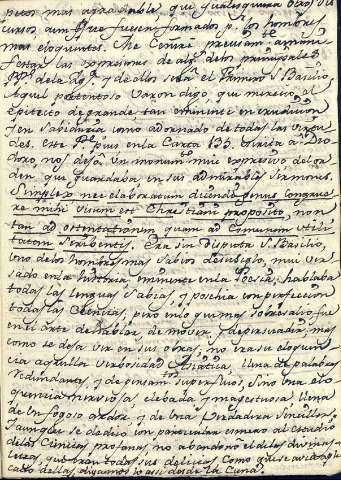 petos mas agradable que qualesquiera otros dis
cursos aunque fuesen formados p.r los hombres
mas eloquentes. Me ceñiré precisam.te a mani
festar las expresiones de alg.s de los principales
PP.s de la Yg.a y de ellos será el primero S. Basilio,
aquel portentoso Varon digo que mereció el
epiteto de grande tan eminente en erudicion
y en Sabiduria como adornado de todas las virtu
des. este P.e pues en la Carta 135. escrita a Dio
doro, nos dejó un monum.to mui expresivo del or
den que guardaba en sus admirables Sermones.
Simplex nec elaboratum dicendi genus congrue
re mihi visum est Christiani proposito, non
tan ad ostentationem quam ad comunem utili
tatem scribentis. Era sin disputa S. Basilio,
uno de los hombres mas sabios de su siglo, mui ver
sado en la historia eminente en la Poesia, hablaba
todas las lenguas sabias, y posehia con perfeccion
todas las Ciencias, pero en lo que mas sobresalio fue
en el arte de hablar de mover, y de persuadir, mas
como se deja ver en sus obras, no era su eloquen
cia aquella verbosidad Asiatica, llena de palabras
redundantes, y de pensam.tos superfluos, sino una elo
quencia nerviosa elebada y magestuosa llena
de un fogoso ardor, y de una verdadera sencillez,
y aunque se dedicó con particular esmero al estudio
de las Ciencias profanas, no abandonó el de las divinas
letras, que eran todas sus delicias como que se avia apli
cado a ellas, digamoslo asi desde la Cuna.